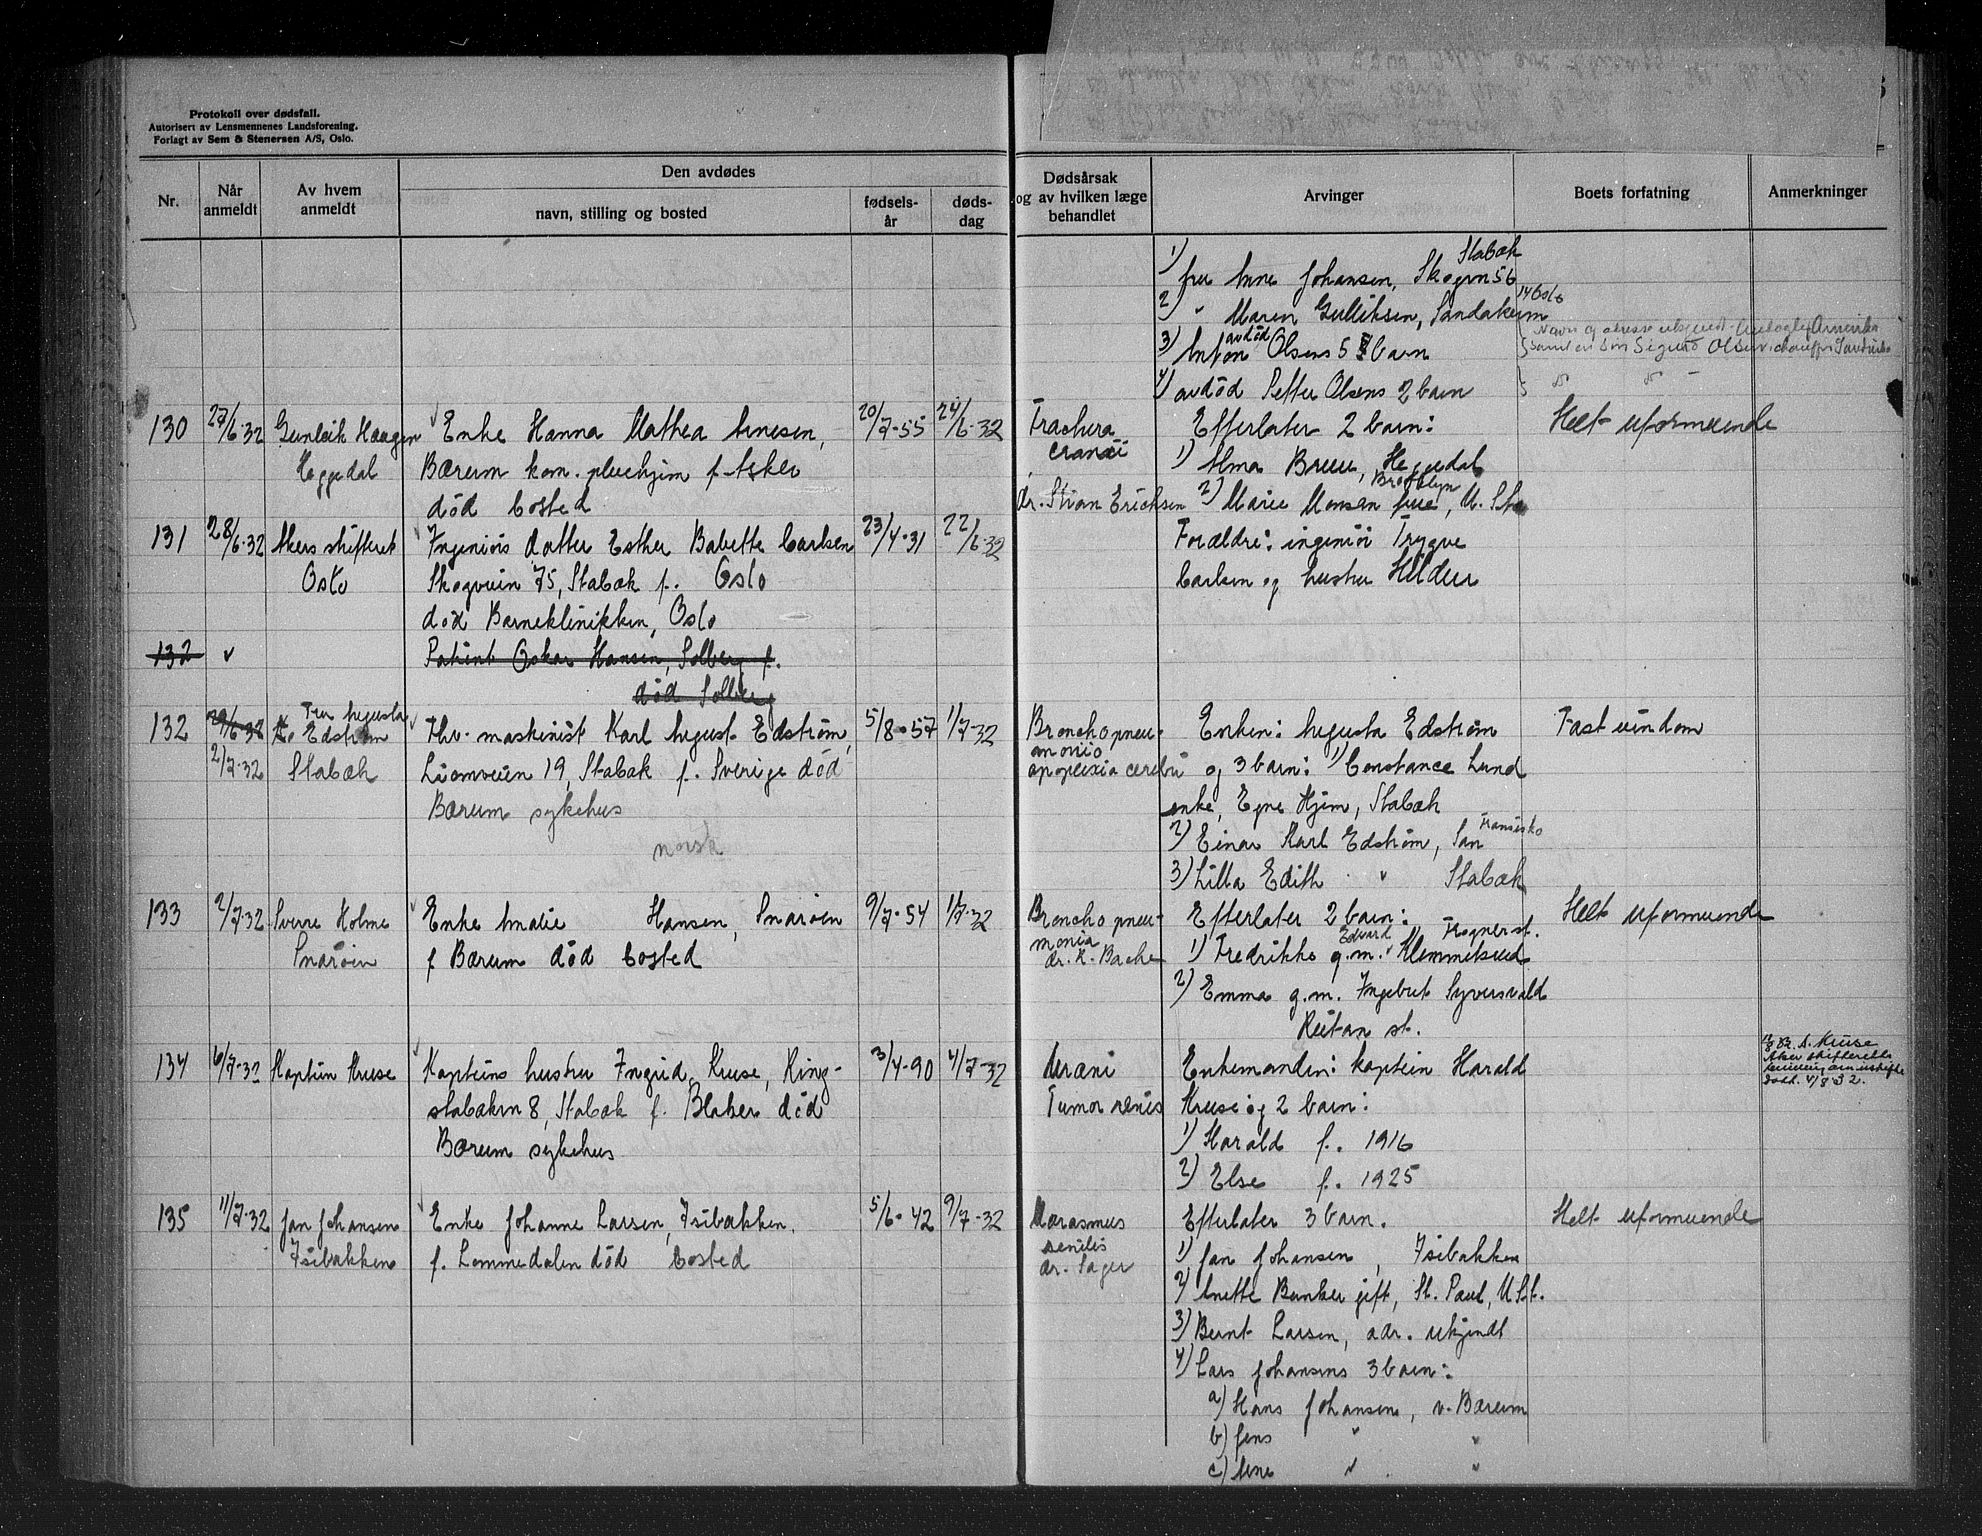 Protokoll over dødsfall.
Autorisert av Lensmennenes Landsforening.
Forlagt av Sem & Stenersen A/S, Oslo.
Nr.
Når anmeldt
Av hvem anmeldt
Den avdødes
navn, stilling og bosted
fødsels-år
døds-dag
Dødsårsak og av hvilken læge behandlet
Arvinger
Boets forfatning
Anmerkninger
Stabæk
1) fru Anne Johansen, Skogvn 56
14 Oslo
2) " Maren Gulliksen, Sandakervn
avdød
3) Anton Olsens 5 barn
Navn og adresse ukjendt. Amerika
samt en søn Sigurd Olsen, chauffør
4) avdød Petter Olsens 2 barn
130 27/6-32 Gunleik Haagen
Heggedal
Enke Hanna Mathea Arnesen,
Bærum kom. pleiehjem f. Asker
död bosted
20/7-55 24/6-32
Fractura
cranii
dr. Stian Erichsen
Efterlater 2 barn:
1) Alma Bruu, Heggedal
Brooklyn
2) Marie Monsen frue, U. Sta
Helt uformuende
131 28/6-32 Akers skifteret
Oslo
Ingeniörs datter Esther Babette Carlsen
Skogveien 75, Stabæk f. Oslo
död Barneklinikken, Oslo
23/4-31 22/6-32
Forældre: ingeniör Trygve
Carlsen og hustru Hildur
132 v
Patient Oskar Hansen, Solberg f.
död Solberg
132 29/6-32
2/7-32
Fru Augusta
Edström
Stabæk
Fhv. maskinist Karl August Edström,
Lionveien 19, Stabæk f. Sverige död
Bærum sykehus
norsk
5/8-57 1/7-32
Bronchopneu-
monia
apoplexia cerebri
Enken: Augusta Edström
og 3 barn: 1) Constance Lund
enke, Egne Hjem, Stabæk
Fransisko
2) Einar Karl Edström, San
3) Lilla Edith " Stabæk
Fast eiendom
133 2/7-32 Sverre Holme
Snaröen
Enke Amalie Hansen, Snaröen
f Bærum död bosted
9/7-54 1/7-32
Bronchopneu-
monia
dr. K. Bache
Efterlater 2 barn:
Edvard Frognerst.
1) Fredrikke g.m. Klemmetsrud
2) Emma g.m. Ingebret Syversvold
Reitan st.
Helt uformuende
134 6/7-32 Kaptein Kruse
Kapteins hustru Ingrid Kruse, Ring-
stabækvn 8, Stabæk f. Blaker död
Bærum sykehus
3/4-90 4/7-32
Uræmi
Tumor renis
Enkemanden: kaptein Harald
Kruse og 2 barn:
1) Harald f. 1916
2) Else f. 1925
Kruse
Aker skifteretts
datt. 4/8 32.
135 11/7-32 Jan Johansen
Isibakken
Enke Johanne Larsen, Isibakken,
f. Lommedalen död bosted
5/6-42 9/7-32
Marasmus
senilis
dr. Sager
Efterlater 3 barn.
1) Jan Johansen, Isibakken
2) Anette Bunker gift, St. Paul, U.St.
3) Bernt Larsen, adr. ukjendt
4) Lars Johansens 3 barn:
a) Hans Johansen, v. Bærum
b) Jens " "
c) Arne " "
Helt uformuende